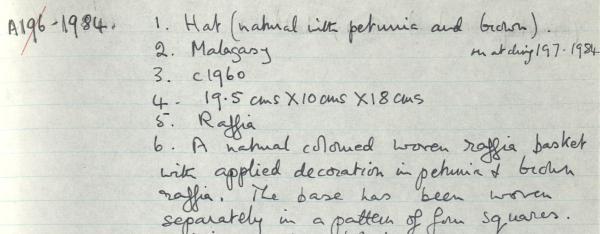 A196-1984. 1. Hat (natural with petunia and brown).
2. Malagasy matching 197.1984
3. c1960
4. 19.5 cms X 10 cms X 18 cms
5. Raffia
6. A natural coloured woven raffia basket
with applied decoration in petunia & brown
raffia. The base has been woven
separately in a pattern of four squares.